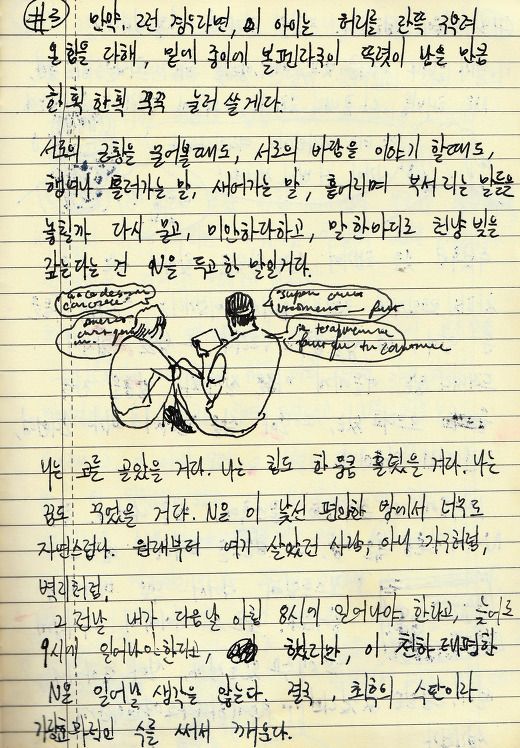 #3 만약, 그런 경우라면, 이 아이는 허리를 잔뜩 구부려
온 힘을 다해, 밑에 종이에 볼펜자국이 뚜렷이 남을 만큼
한획 한획 꾹꾹 눌러 쓸게다.
서로의 근황을 물어볼때도, 서로의 바람을 이야기 할때도,
행여나 흘러가는 말, 새어가는 말, 흩어리며 부서지는 말들을
놓칠까 다시 묻고, 미안하다하고, 말 한마디로 천냥 빚을
갚는다는 건 N을 두고 한 말일거다.
나는 코를 골았을 거다. 나는 침도 한웅큼 흘렸을 거다. 나는
꿈도 꾸었을 거다. N은 이 낯선 편안한 방에서 더욱 로
자연스럽다. 원래부터 여기 살았던 사람, 아니 가구처럼,
벽지처럼,
그런날 내가 다음날 아침 8시에 일어나야 한다고, 늦어도
9시에 일어나야한다고, 했더라, 이 천하태평한
N은 일어날 생각을 않는다. 결국, 최후의 수단이라
인 수를 써서 깨운다.